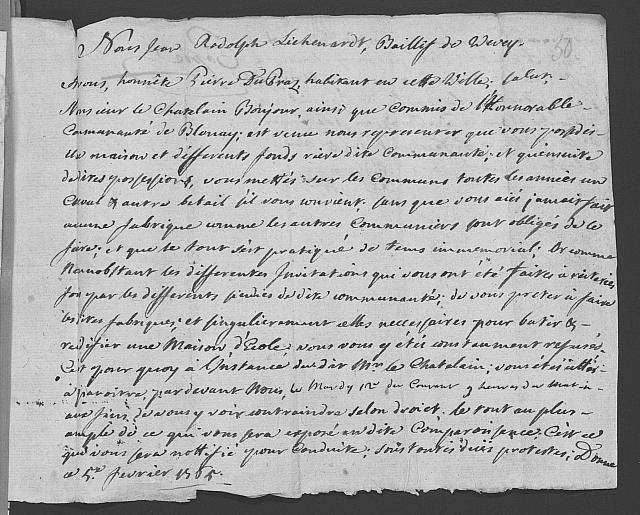 Nous Jean Rodolph Lichenardt, Baillif de Vevey.
50.
à vous, honnête Pierre DuPraz, habitant en cette Ville, Salut,
Monsieur le Chatelain Bonjour, ainsi que commis de l'Honnorable
Communauté de Blonay, est venu nous representer que vous possedés
une maison et differents fonds rière dite Communauté, et qu'ensuite
dedites possessions, vous mettés sur les Communs toutes les années un
Cheval & autre betail s'il vous convient, sans que vous aiés jamais fait
aucune fabrique comme les autres Communiers sont obligés de
faire, et que le tout s'est pratiqué de tems immemorial, Or comme
Nonobstant les differentes Invitations qui vous ont été faites à
par les differents de dite communauté, de vous preter à faire
les dites fabriques, et singulierement celles necessaires pour batir &
redifier une Maison d'Ecole, vous vous y etes constamment refusé,
C'est pour quoy à l'instance du dit Mr. le Chatelain, vous étés
à paroitre par devant Nous, le Mardy 12e du Courant 9 heures du matin
aux fins de vous y voir contraindre selon droict, le tout au plus
ample de ce qui vous sera exposé en dite Comparoissance, C'est ce
qui vous sera notifié pour conduite, sous toutes dues protestes, Donné
ce 5e fevrier 1765.